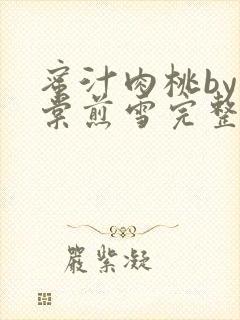 蜜汁肉桃by
棠煎雪完整
嚴紫凝